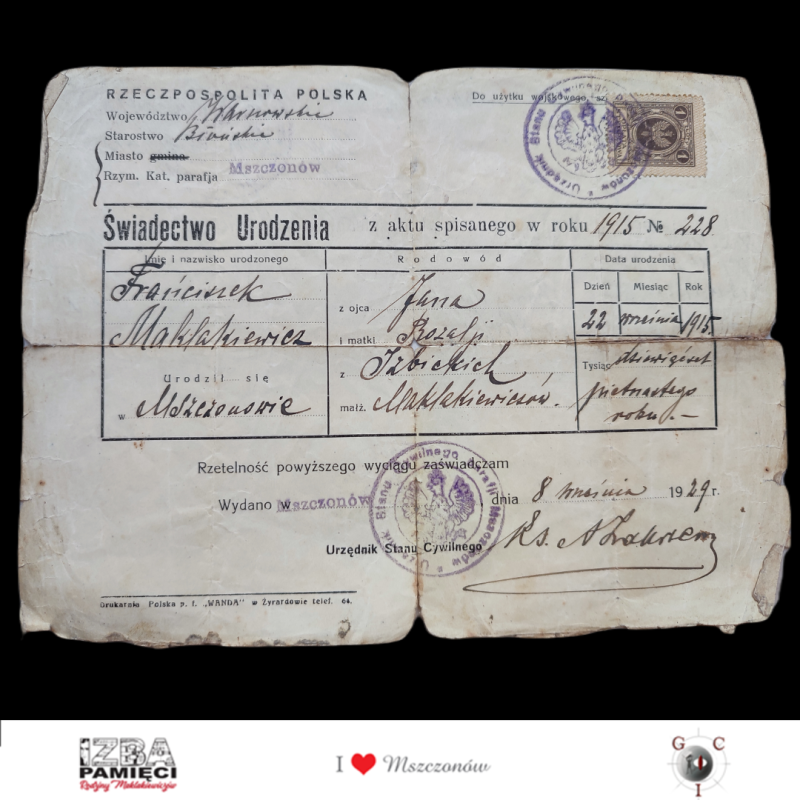 RZECZPOSPOLITA POLSKA
Województwo Warszawskie
Starostwo Błońskie
Miasto gmina
Rzym. Kat. parafja Mszczonów
Do użytku wojskowego, sz
Urzędnik Stanu Cywilnego Parafji Mszczonów
1 1
Świadectwo Urodzenia z aktu spisanego w roku 1915 № 228
Imię i nazwisko urodzonego
Rodowód
Data urodzenia
Dzień Miesiąc Rok
Franciszek
Maklakiewicz
Urodził się
w Mszczonowie
z ojca Jana
i matki Rozalji
z Izbickich
małż. Maklakiewiczów.
22 września 1915
Tysiąc dziewięćset
piętnastego
roku. —
Rzetelność powyższego wyciągu zaświadczam
Wydano w Mszczonów dnia 8 września 1929 r.
Urzędnik Stanu Cywilnego Ks. A
Urzędnik Stanu Cywilnego Parafji Mszczonów
Drukarnia Polska p. f. „WANDA" w Żyrardowie telef. 64.
IZBA
PAMIĘCI
Rodziny Maklakiewiczów
I ❤ Mszczonów
G C
I